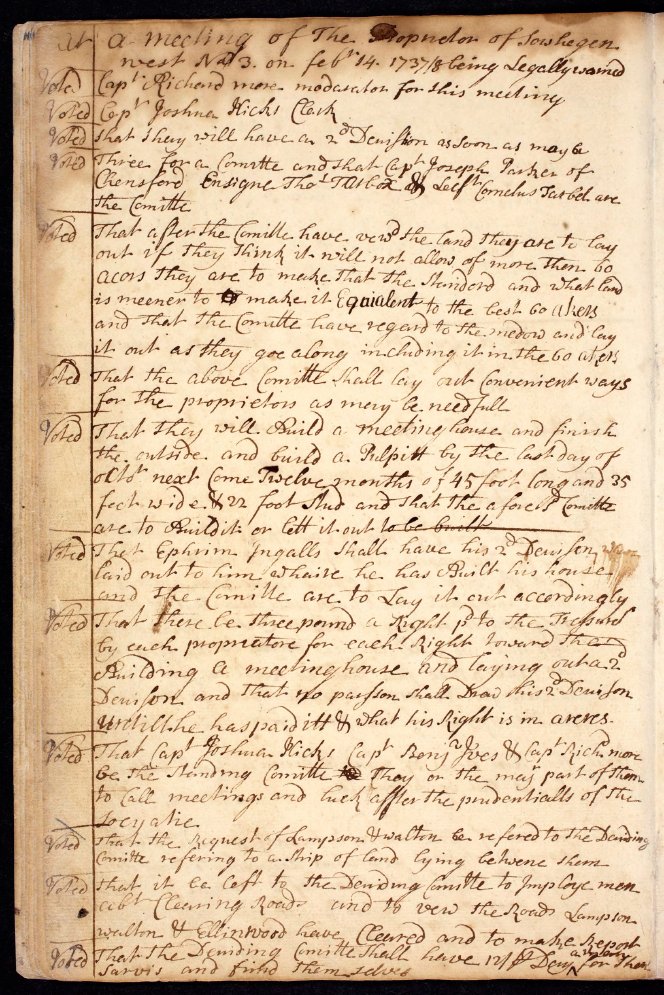 At a meeting of The Proprietor of Sowhegen
west No 3. on febr 14. 1737/8 being Legally warned
Voted Capt Richard more modarator for this meeting
Voted Capt Joshua Hicks Clark
Voted that they will have a 2d Devission as soon as may be
Voted Three for a Comitte and that Capt Joseph Parker of
Chensford Ensigne Thos Tarbox & Left Cornelus Tarbel are
the Comitte
Voted That after the Comitte have vewd the land they are to lay
out if they think it will not allow of more then 60
acors they are to make that the Standerd and what land
is meener to make it Equialent to the best 60 akers
and that the Comitte have regard to the medow and lay
it out as they goe along including it in the 60 akers
Voted That the above Comitte shall lay out Convenient ways
for the proprietors as mery be needfull
Voted That they will Build a meeting house and finish
the outside and build a Pulpitt by the last day of
octbr next Come Twelve months of 45 foot long and 35
foot wide & 22 foot stud and that the aforesd Comitte
are to Build it or lett it out to be built
Voted That Ephrim Ingalls shall have his 2d Devison
laid out to him whaire he has Built his house
and the Comitte are to Lay it out accordingly
Voted That there be three pound a Right pd to the Treasurer
by each propriatore for each Right toward the
Building a meetinghouse and laying out a 2d
Devison and that no parsson shall Draw his 2d Devison
untill he has paid itt & what his Right is in areres
Voted That Capt Joshua Hicks Capt Benjr Ives & Capt Richd more
be the standing Comitte They or the majr part of them
to Call meetings and luck affter the prudentialls of the
Socyatie
Voted that the Request of Lampson & walton be refered to the Deviding
Comitte refering to a strip of land lying betwene them
Voted that it be Left to the Deviding Comitte to Imploye men
abt Clearing Roads and to vew the Roads Lampson
walton & Ellinwood have Cleared and to make Report
Voted That the Deviding Comitte shall have 12/ pr Day for their
Sarvis and find them selves